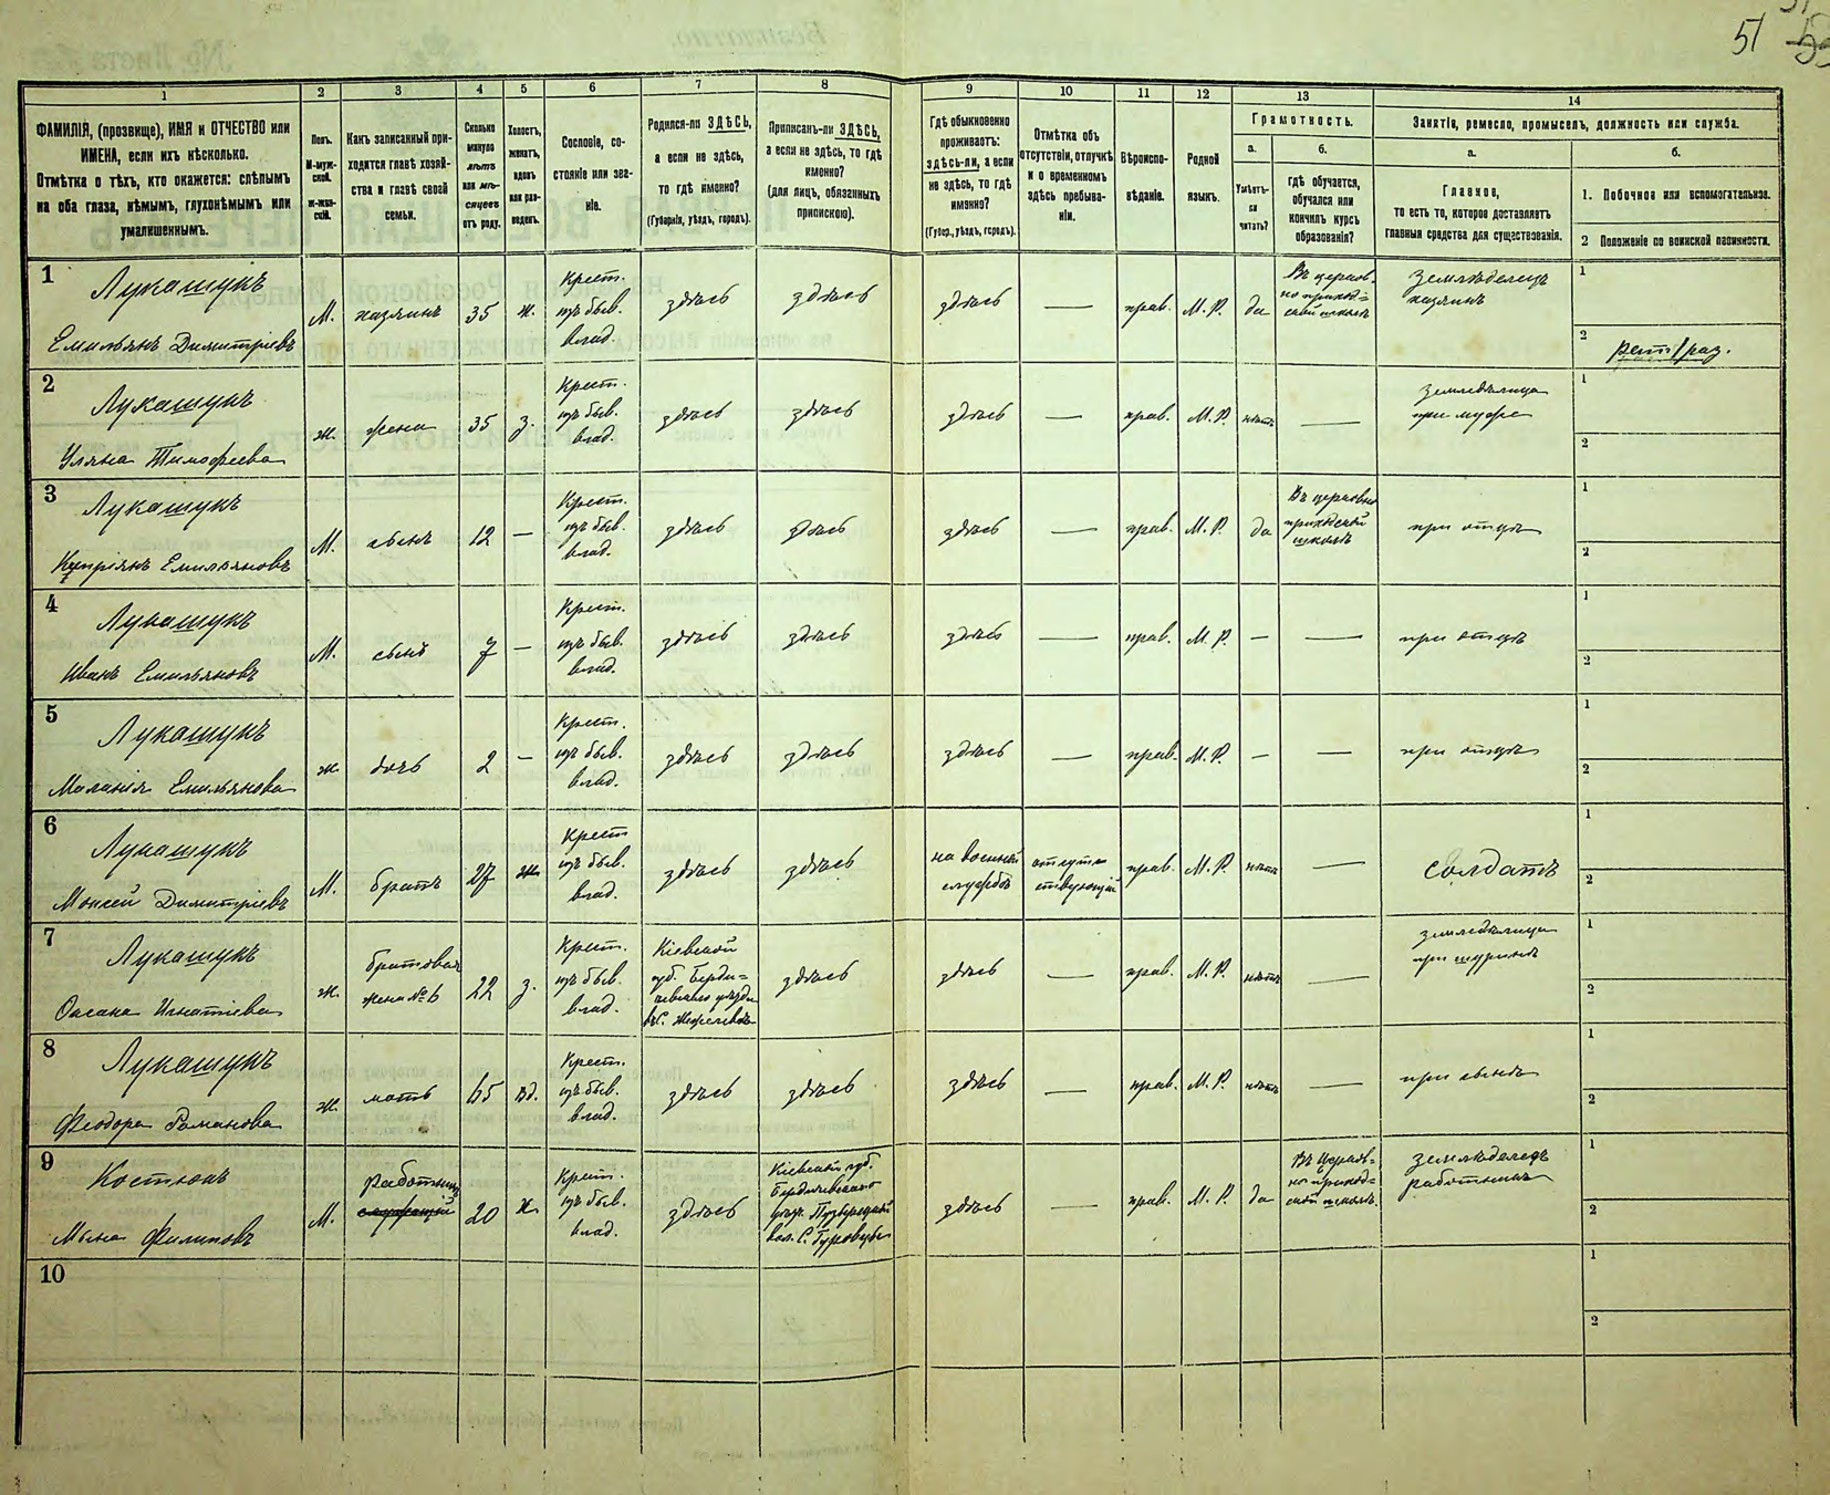 51
1 2 3 4 5 6 7 8 9 10 11 12 13 14
ФАМИЛІЯ, (прозвище), ИМЯ и ОТЧЕСТВО или ИМЕНА, если ихъ нѣсколько.
Отмѣтка о тѣхъ, кто окажется: слѣпымъ на оба глаза, нѣмымъ, глухонѣмымъ или умалишеннымъ.
Полъ.
М-мужской.
Ж-женскій.
Какъ записанный приходится главѣ хозяйства и главѣ своей семьи.
Сколько минуло лѣтъ или мѣсяцевъ отъ роду.
Холостъ, женатъ, вдовъ или разведенъ.
Сословіе, состояніе или званіе.
Родился-ли ЗДѢСЬ, а если не здѣсь, то гдѣ именно?
(Губернія, уѣздъ, городъ).
Приписанъ-ли ЗДѢСЬ, а если не здѣсь, то гдѣ именно?
(для лицъ, обязанныхъ припискою).
Гдѣ обыкновенно проживаетъ: здѣсь-ли, а если не здѣсь, то гдѣ именно?
(Губер., уѣздъ, городъ).
Отмѣтка объ отсутствіи, отлучкѣ и о временномъ здѣсь пребываніи.
Вѣроисповѣданіе.
Родной языкъ.
Грамотность.
а.
Умѣетъ-ли читать?
б.
гдѣ обучается, обучался или кончилъ курсъ образованія?
Занятіе, ремесло, промыселъ, должность или служба.
а.
Главное,
то есть то, которое доставляетъ главныя средства для существованія.
б.
1. Побочное или вспомогательное.
2 Положеніе по воинской повинности.
1 Лукашукъ Емильянъ Димитріевъ М. хазяинъ 35 ж. Крест. изъ быв. влад. здѣсь здѣсь здѣсь — прав. М. Р. да Въ церковно приходской школѣ Землѣделецъ хазяинъ 1
2
2 Лукашукъ Уляна Тимофеева ж. жена 35 з. Крест. изъ быв. влад. здѣсь здѣсь здѣсь — прав. М. Р. нѣтъ — земледѣлица при мужѣ 1
2
3 Лукашукъ Купріянъ Емильяновъ М. сынъ 12 — Крест. изъ быв. влад. здѣсь здѣсь здѣсь — прав. М. Р. да Въ церковно приходской школѣ при отцѣ 1
2
4 Лукашукъ Иванъ Емильяновъ М. сынъ 7 — Крест. изъ быв. влад. здѣсь здѣсь здѣсь — прав. М. Р. — — при отцѣ 1
2
5 Лукашукъ Маланія Емильянова ж. дочь 2 — Крест. изъ быв. влад. здѣсь здѣсь здѣсь — прав. М. Р. — — при отцѣ 1
2
6 Лукашукъ Моисей Димитріевъ М. братъ 27 ж. Крест изъ быв. влад. здѣсь здѣсь на военный службѣ отсутствующій прав. М. Р. нѣтъ — Солдатъ 1
2
7 Лукашукъ Оксана Игнатіева ж. братовая жена № 6 22 з. Крест. изъ быв. влад. Кіевской губ. Бердичевскаго уѣзда здѣсь здѣсь — прав. М. Р. нѣтъ — земледѣлица при шуринѣ 1
2
8 Лукашукъ Феодора Романова ж. мать 65 вд. Крест. изъ быв. влад. здѣсь здѣсь здѣсь — прав. М. Р. нѣтъ — при сынѣ 1
2
9 Костюкъ Мына Филиповъ М. работникъ 20 Крест. изъ быв. влад. здѣсь Кіевской губ. Бердичевскаго вол. С. здѣсь — прав. М. Р. да Въ Церковно приходской школѣ Землѣделецъ работникъ 1
2
10 1
2